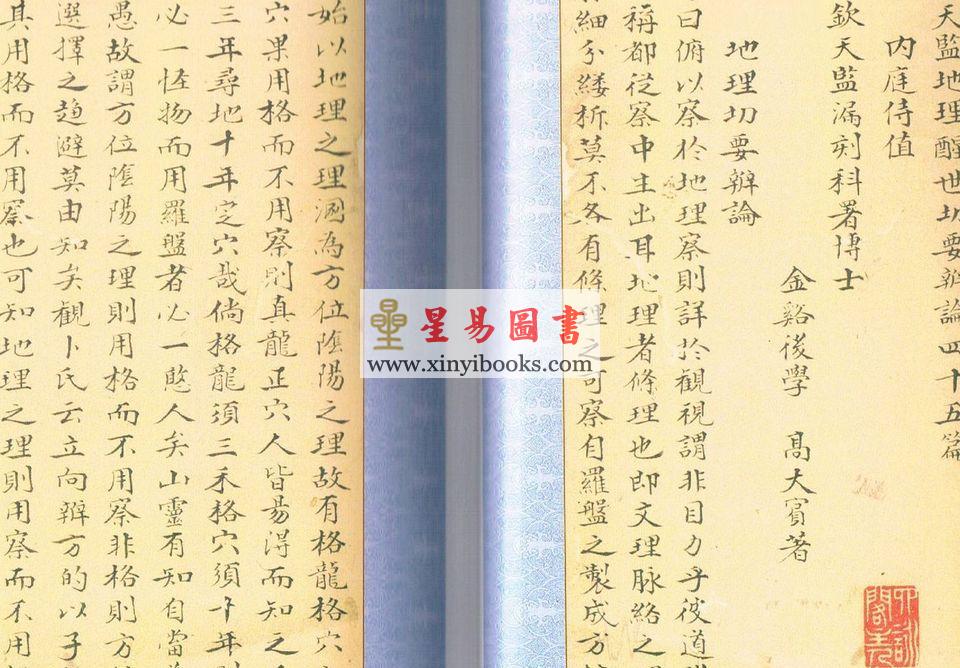 天監地理醒世切要辨論四十五篇
內庭侍值
欽天監漏刻科署博士
金谿後學 高大賓著
地理切要辨論
曰俯以察於地理察則詳於觀視謂非目力乎彼道
稱都從察中生出耳地理者條理也即文理脉絡之
細分縷析莫不各有條理之可察自羅盤之製成方
始以地理之理溷為方位隂陽之理故有格龍格穴
穴果用格而不用察則真龍正穴人皆易淂而知之
三年尋地十年定穴哉倘格龍須三禾格穴須十年則
必一怪物而用羅盤者必一愍人矣山靈有知自當
愚故謂方位隂陽之理則用格而不用察非格則方
選擇之趋避莫由知矣観卜氏云立向辨方的以子
其用格而不用察也可知地理之理則用察而不用
星易圖書
www.xinyibooks.com